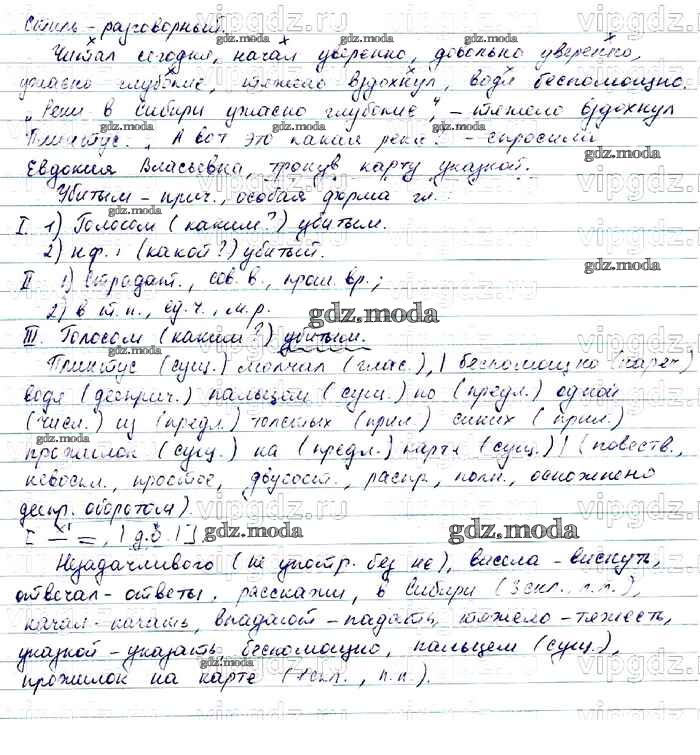 Стиль – разговорный.
Читал сегодня, начал уверенно, довольно уверенно,
ужасно глубокие, тяжело вздохнул, водя беспомощно.
„Реки в Сибири ужасно глубокие", – тяжело вздохнул
Плинтус. „А вот это какая река? – спросила
Евдокия Власьевна, тронув карту указкой.
Убитым – прич., особая форма гл.:
I. 1) Голосом (каким?) убитым.
2) н.ф.: (какой?) убитый.
II 1) страдат., сов. в., прош. вр.;
2) в т.п., ед.ч., м.р.
III. Голосом (каким?) убитым.
Плинтус (сущ.) молчал (глаг.), | беспомощно (нареч.)
водя (дееприч.) пальцем (сущ.) по (предл.) одной
(числ.) из (предл.) толстых (прил.) синих (прил.)
прожилок (сущ.) на (предл.) карте (сущ.) | (повеств.,
невоскл., простое, двусост., распр., полн., осложнено
деепр. оборотом)
[ – =, | д.о. | ].
Незадачливого (не употр. без не), висела – виснуть,
отвечал – ответы, расскажи, в Сибири (3 скл., п.п.),
начал – начать, впадают – падать, тяжело – тяжесть,
указкой – указать, беспомощно, пальцем (сущ.),
прожилок на карте (1 скл., п.п.).
gdz.moda
vipgdz.ru